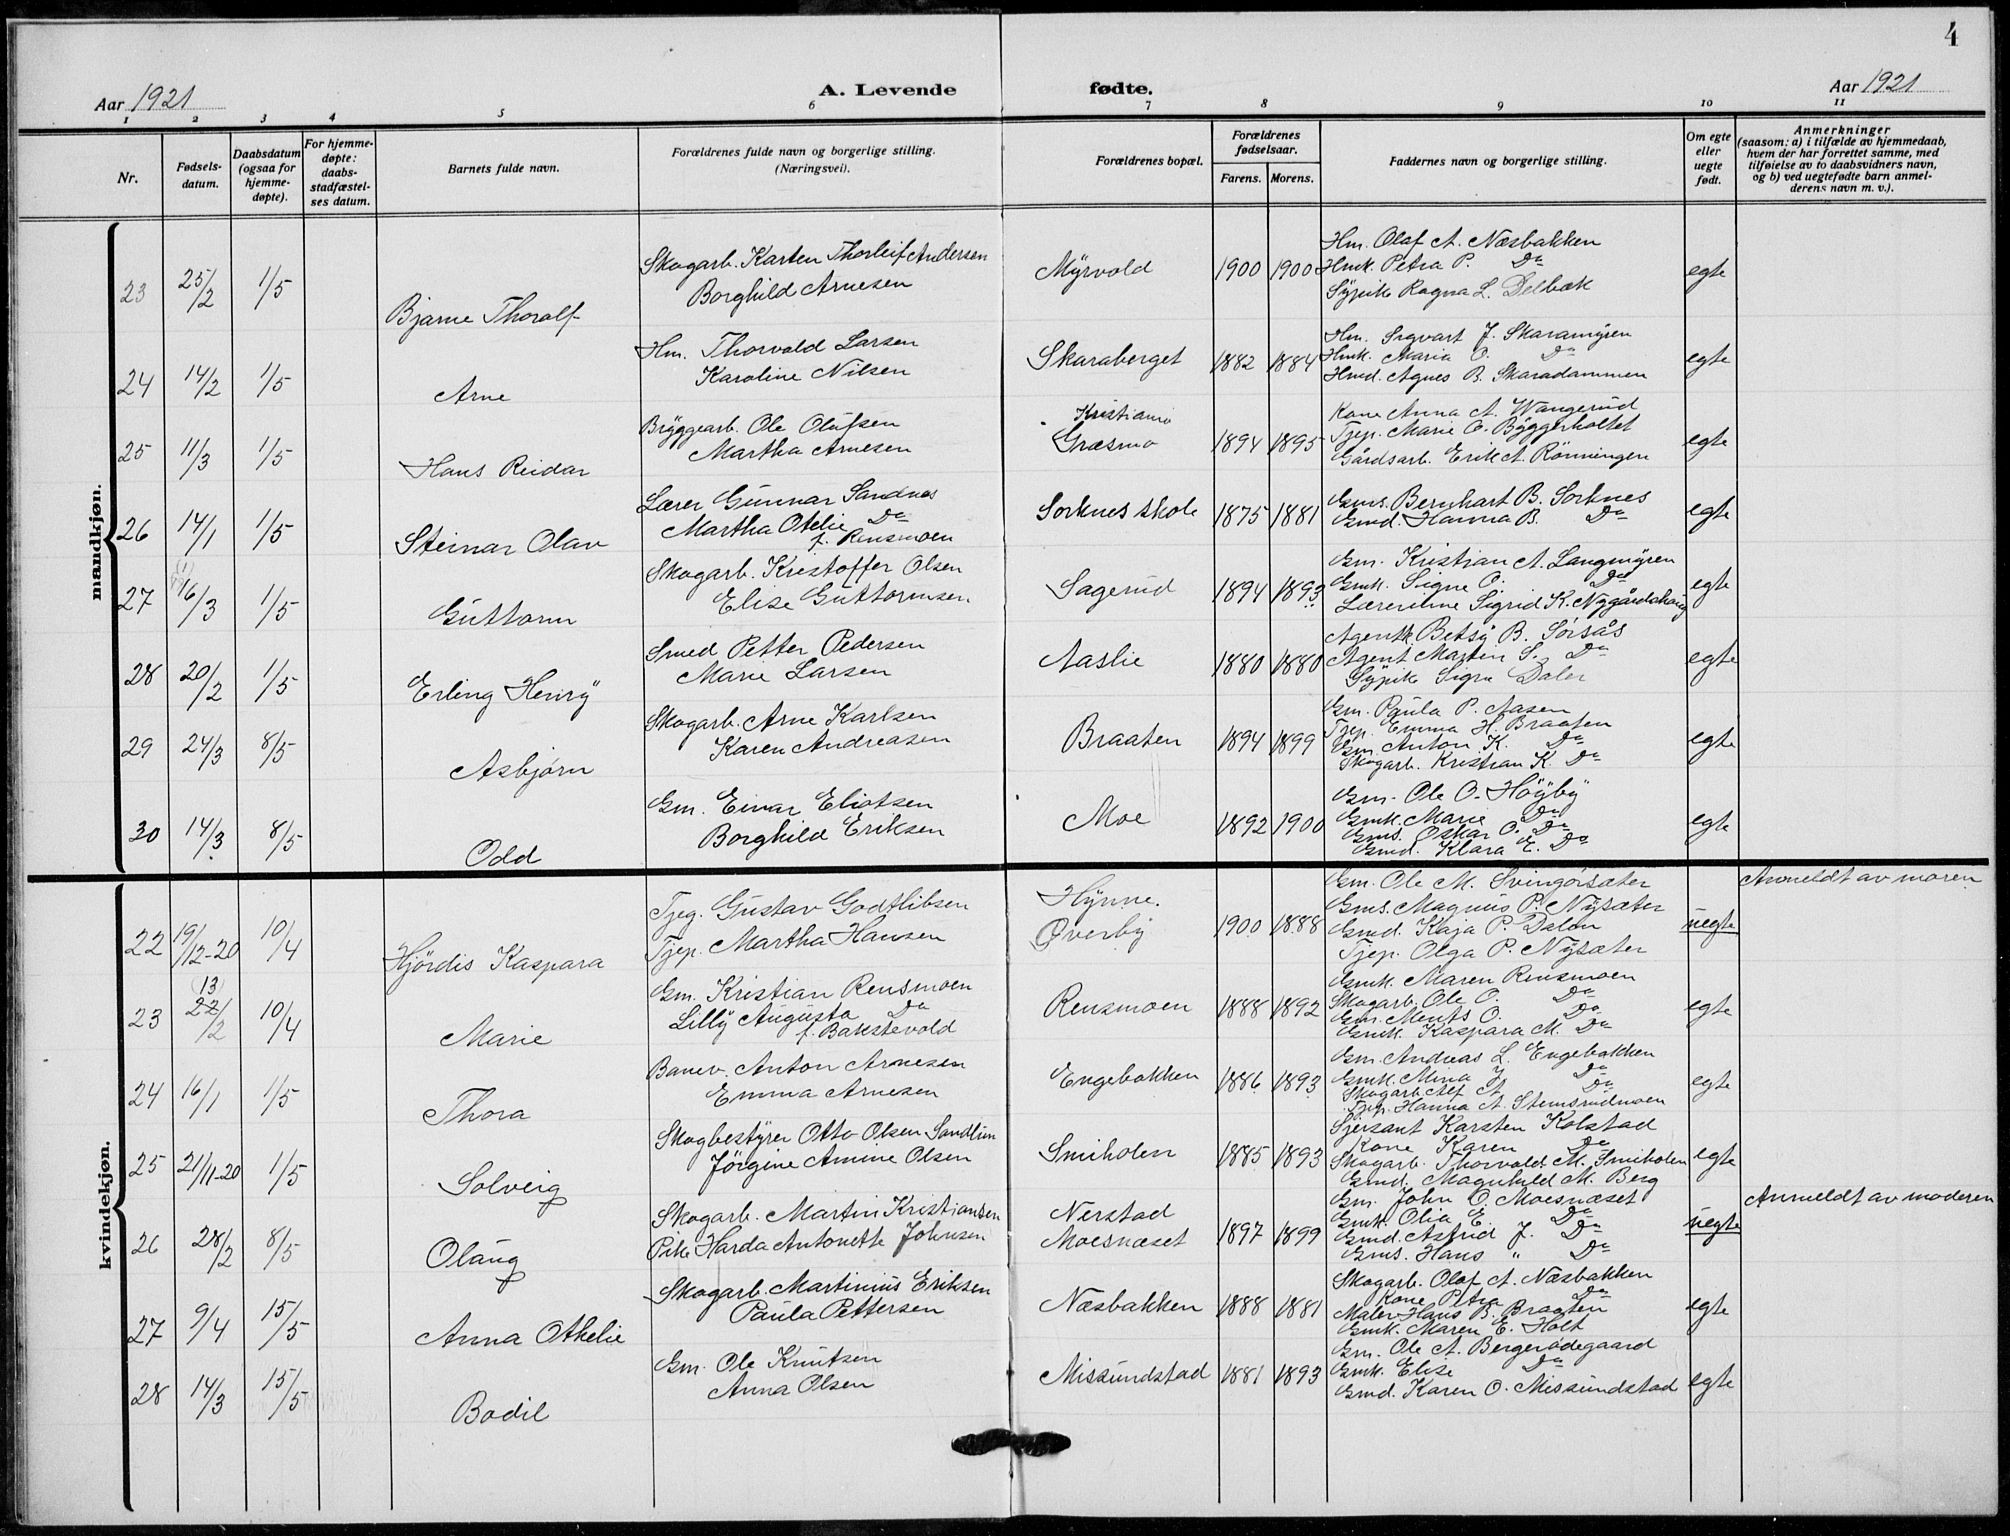 4
Aar 1921
A. Levende fødte.
Aar 1921
1 2 3 4 5 6 7 8 9 10 11
Nr.
Fødsels-
datum.
Daabsdatum
(ogsaa for
hjemme-
døpte).
For hjemme-
døpte:
daabs-
stadfæstel-
ses datum.
Barnets fulde navn.
Forældrenes fulde navn og borgerlige stilling.
(Næringsvei).
Forældrenes bopæl.
Forældrenes
fødselsaar.
Farens. Morens.
Faddernes navn og borgerlige stilling.
Om egte
eller
uegte
født.
Anmerkninger
(saasom: a) i tilfælde av hjemmedaab,
hvem der har forrettet samme, med
tilføielse av to daabsvidners navn,
og b) ved uegtefødte barn anmel-
derens navn m. v.).
mandkjøn.
23 25/2 1/5
Bjarne Thoralf
Skogarb. Karten Thorleif Andersen
Borghild Arnesen
Myrvold
1900 1900
Hm. Olaf A. Næsbakken
Hmk. Petra P. Do
Sypike Ragna L. Delbæk
egte
24 14/2 1/5
Arne
Hm. Thorvald Larsen
Karoline Nilsen
Skaraberget
1882 1884
Hm. Sigvart J. Skaramyren
Hmk. Maria O. Do
Hmd. Agnes B. Skaradammen
egte
25 11/3 1/5
Hans Reidar
Bryggearb. Ole Olufsen
Martha Arnesen
Kristiania
Græsmo
1894 1895
Kone Anna A. Wangerud
Tjep. Marie O. Byggerholtet
Gårdsarb. Erik A. Rønningen
egte
26 14/1 1/5
Steinar Olav
Lærer Gunnar Sandnes
Martha Otelie Do
f. Rensmoen
Sorknes skole
1875 1881
Gms. Bernhart B. Sorknes
Gmd. Hanna B. Do
egte
27 16/3 1/5
Guttorm
Skogarb. Kristoffer Olsen
Elise Guttormsen
Sagerud
1894 1893
Gm. Kristian A. Langmyren
Gmk. Signe O. Do
Lærerinne Sigrid K. Nygårdshaug
egte
28 20/2 1/5
Erling Henry
Smed Petter Pedersen
Marie Larsen
Aaslie
1880 1880
Agentk. Betsy B. Sørsås
Agent Martin S. Do
Sypike Signe Daler
egte
29 24/3 8/5
Asbjørn
Skogarb. Arne Karlsen
Karen Andreasen
Braaten
1894 1899
Gm. Paula P. Aasen
Tjep. Emma H. Braaten
Gm. Anton K. Do
Skogarb. Kristian K. Do
egte
30 14/3 8/5
Odd
Gm. Einar Eliotsen
Borghild Eriksen
Moe
1892 1900
Gm. Ole O. Høyby
Gmk. Marie Do
Gms. Oskar O. Do
Gmd. Klara E. Do
egte
kvindekjøn.
22 19/12-20 10/4
Hjördis Kaspara
Tjeg. Gustav Godtlibsen
Tjep. Martha Hansen
Hynne.
Øverby
1900 1888
Gm. Ole M. Svingørsæter
Gms. Magnus P. Nysæter
Gmd. Kaja P. Dalen
Tjep. Olga P. Nysæter
uegte
Anmeldt av moren
23 (13) 22/2 10/4
Marie
Gm. Kristian Rensmoen
Lilly Augusta Do
f. Bakstevold
Rensmoen
1888 1892
Gmk. Maren Rensmoen
Skogarb. Ole O. Do
Gm. Ments O. Do
Gmk. Kaspara M. Do
egte
24 16/1 1/5
Thora
Banev. Anton Arnesen
Emma Arnesen
Engebakken
1886 1893
Gm. Andreas L. Engebakken
Gmk. Mina J. Do
Skogarb. Alf A. Do
Tjep. Hanna A. Stemsrudmoen
egte
25 21/11-20 1/5
Solveig
Skogbestyrer Otto Olsen Sandlun
Jørgine Amine Olsen
Smiholen
1885 1893
Sjersant Karsten Kolstad
Kone Karen Do
Skogarb. Thorvald M. Smiholen
Gmd. Magnhild M. Berg
egte
26 28/2 8/5
Olaug
Skogarb. Martin Kristiansen
Pike Harda Antonette Johnsen
Nerstad
Moesnæset
1897 1899
Gm. John O. Moesnæset
Gmk. Olia E. Do
Gmd. Astrid J. Do
Gms. Hans " Do
uegte
Anmeldt av moderen
27 9/4 15/5
Anna Othelie
Skogarb. Martinius Eriksen
Paula Pettersen
Næsbakken
1888 1881
Skogarb. Olaf A. Næsbakken
Kone Petra Do
Maler Hans B. Braaten
Gmk. Maren E. Holt
egte
28 14/3 15/5
Bodil
Gm. Ole Knutsen
Anna Olsen
Missundstad
1881 1893
Gm. Ole A. Bergerødegaard
Gmk. Elise Do
Gmd. Karen O. Missundstad
egte